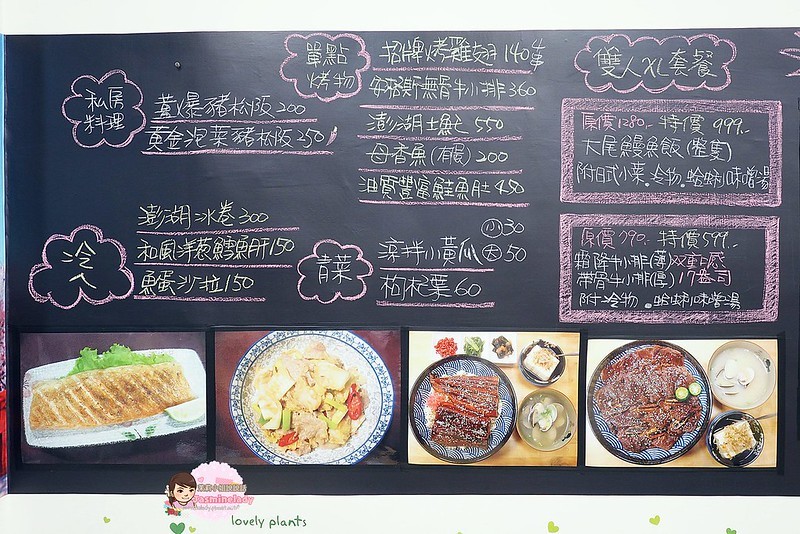 私房
料理
薑爆豬松阪 200
黃金泡菜豬松阪 250
單點
烤物
招牌烤雞翅 140/隻
安格斯無骨牛小排 360
澎湖土魠 550
母香魚(有限) 200
油質豐富鮭魚肚 480
冷
澎湖冰卷 300
和風洋蔥鱈魚肝 150
魚蛋沙拉 150
青菜
涼拌小黃瓜 小30 大50
枸杞葉 60
雙人XL套餐
原價1280.- 特價 999.-
大尾鰻魚飯(整隻)
附日式小菜.冷物.蛤蜊味噌湯
原價790.- 特價599.-
霜降牛小排(薄)双重口感
帶骨牛小排(厚) 17盎司
附:冷物.蛤蜊味噌湯
Yasminelady
lovely plants